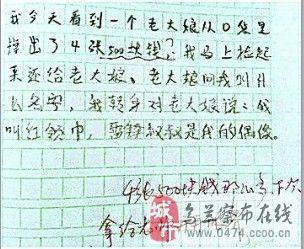 我今天看到一个老大娘从口袋里
掉出了4张500块钱?我马上捡起
来还给老大娘、老大娘问我叫什
么名字，我转身对老大娘说：我
叫红领巾，雷锋叔叔是我的偶像。
4张500块钱那么多下次
拿给老师
城市
乌兰察布在线
www.0474.ccoo.cn